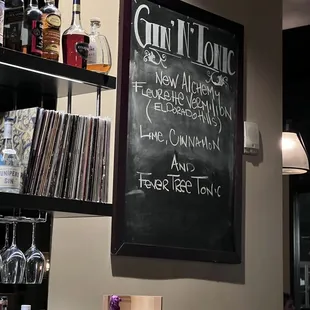 Gin 'N' Tonic
New Alchemy
Fleurette Vermilion
(Eldorado Hills)
Lime, Cinnamon
And
Fever Tree Tonic